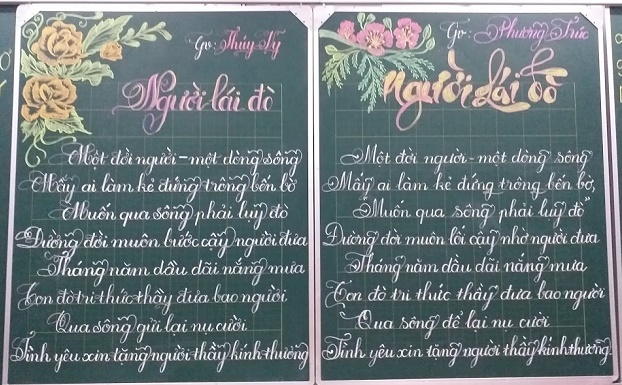 Gv: Thúy Vy
Người lái đò
Một đời người - một dòng sông
Mấy ai làm kẻ đứng trông bến bờ
Muốn qua sông phải luỵ đò
Đường đời muôn bước cậy người đưa
Tháng năm dầu dãi nắng mưa
Con đò tri thức thầy đưa bao người
Qua sông gửi lại nụ cười
Tình yêu xin tặng người thầy kính thương
Gv: Phương Trúc
Người lái đò
Một đời người - một dòng sông
Mấy ai làm kẻ đứng trông bến bờ,
"Muốn qua sông phải luỵ đò"
Đường đời muôn lối cậy nhờ người đưa
Tháng năm dầu dãi nắng mưa
Con đò tri thức thầy đưa bao người
Qua sông để lại nụ cười
Tình yêu xin tặng người thầy kính thương.